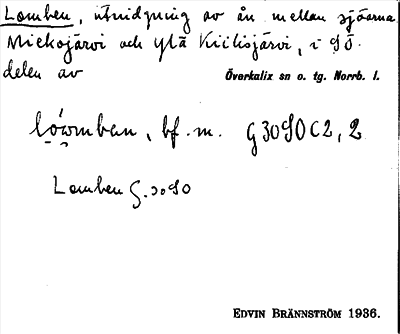 Lomben, utvidgning av ån mellan sjöarna
Miekojärvi och Ytä Kiilisjärvi, i SÖ.
delen av Överkalix sn o. tg. Norrb. l.
lówmban, bf. m. G3090C2, 2
Lomben G.3090
EDVIN BRÄNNSTRÖM 1936.